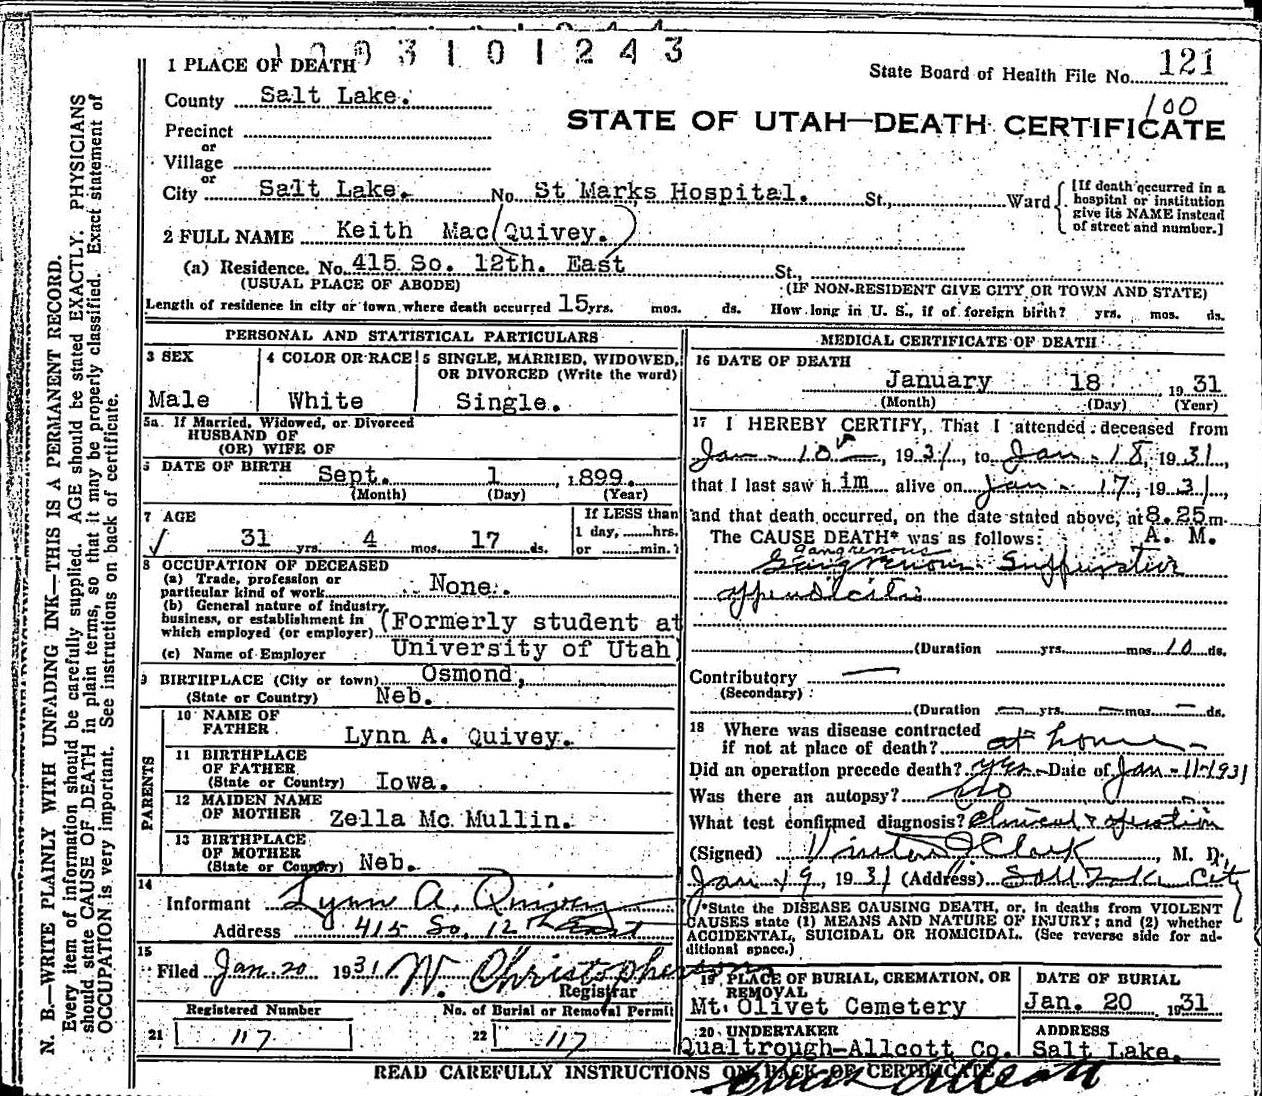 1003101243
1 PLACE OF DEATH
State Board of Health File No. 121
County Salt Lake.
100
STATE OF UTAH—DEATH CERTIFICATE
Precinct
or
Village
or
City Salt Lake. No. St Marks Hospital. St., Ward
[If death occurred in a hospital or institution give its NAME instead of street and number.]
2 FULL NAME Keith Mac(Quivey.)
(a) Residence. No. 415 So. 12th. East St.,
(USUAL PLACE OF ABODE) (IF NON-RESIDENT GIVE CITY OR TOWN AND STATE)
Length of residence in city or town where death occurred 15 yrs. mos. ds. How long in U. S., if of foreign birth? yrs. mos. ds.
PERSONAL AND STATISTICAL PARTICULARS
3 SEX
Male
4 COLOR OR RACE
White
5 SINGLE, MARRIED, WIDOWED, OR DIVORCED (Write the word)
Single.
5a If Married, Widowed, or Divorced
HUSBAND OF
(OR) WIFE OF
6 DATE OF BIRTH Sept. 1 , 1899.
(Month) (Day) (Year)
7 AGE
31 yrs. 4 mos. 17 ds.
If LESS than
1 day, hrs.
or min.?
8 OCCUPATION OF DECEASED
(a) Trade, profession or
particular kind of work None.
(b) General nature of industry,
business, or establishment in
which employed (or employer) (Formerly student at
(c) Name of Employer University of Utah)
9 BIRTHPLACE (City or town) Osmond,
(State or Country) Neb.
PARENTS
10 NAME OF
FATHER Lynn A. Quivey.
11 BIRTHPLACE
OF FATHER
(State or Country) Iowa.
12 MAIDEN NAME
OF MOTHER Zella Mc. Mullin.
13 BIRTHPLACE
OF MOTHER
(State or Country) Neb.
14
Informant Lynn A. Quivey
Address 415 So. 12th East
15
Filed Jan. 20 1931 W. Christopherson
Registrar
Registered Number
21 117
No. of Burial or Removal Permit
22 117
MEDICAL CERTIFICATE OF DEATH
16 DATE OF DEATH
January 18 , 1931
(Month) (Day) (Year)
17 I HEREBY CERTIFY, That I attended deceased from
Jan - 10th, 1931, to Jan - 18, 1931,
that I last saw him alive on Jan - 17, 1931,
and that death occurred, on the date stated above, at 8.25 m.
The CAUSE DEATH* was as follows: A. M.
gangrenous
Gangrenous Suppurative
appendicitis
(Duration yrs. mos. 10 ds.
Contributory —
(Secondary)
(Duration — yrs. — mos. — ds.
18 Where was disease contracted
if not at place of death? at home -
Did an operation precede death? yes - Date of Jan - 11 - 1931
Was there an autopsy? No
What test confirmed diagnosis? Clinical & operation
(Signed) Clark, M. D.
Jan 19, 1931 (Address) Salt Lake City
*State the DISEASE CAUSING DEATH, or, in deaths from VIOLENT
CAUSES state (1) MEANS AND NATURE OF INJURY; and (2) whether
ACCIDENTAL, SUICIDAL OR HOMICIDAL. (See reverse side for ad-
ditional space.)
19 PLACE OF BURIAL, CREMATION, OR
REMOVAL
Mt. Olivet Cemetery
DATE OF BURIAL
Jan. 20 , 1931
20 UNDERTAKER
Qualtrough-Allcott Co.
ADDRESS
Salt Lake.
READ CAREFULLY INSTRUCTIONS ON BACK OF CERTIFICATE
N. B.—WRITE PLAINLY WITH UNFADING INK—THIS IS A PERMANENT RECORD.
Every item of information should be carefully supplied. AGE should be stated EXACTLY. PHYSICIANS
should state CAUSE OF DEATH in plain terms, so that it may be properly classified. Exact statement of
OCCUPATION is very important. See instructions on back of certificate.